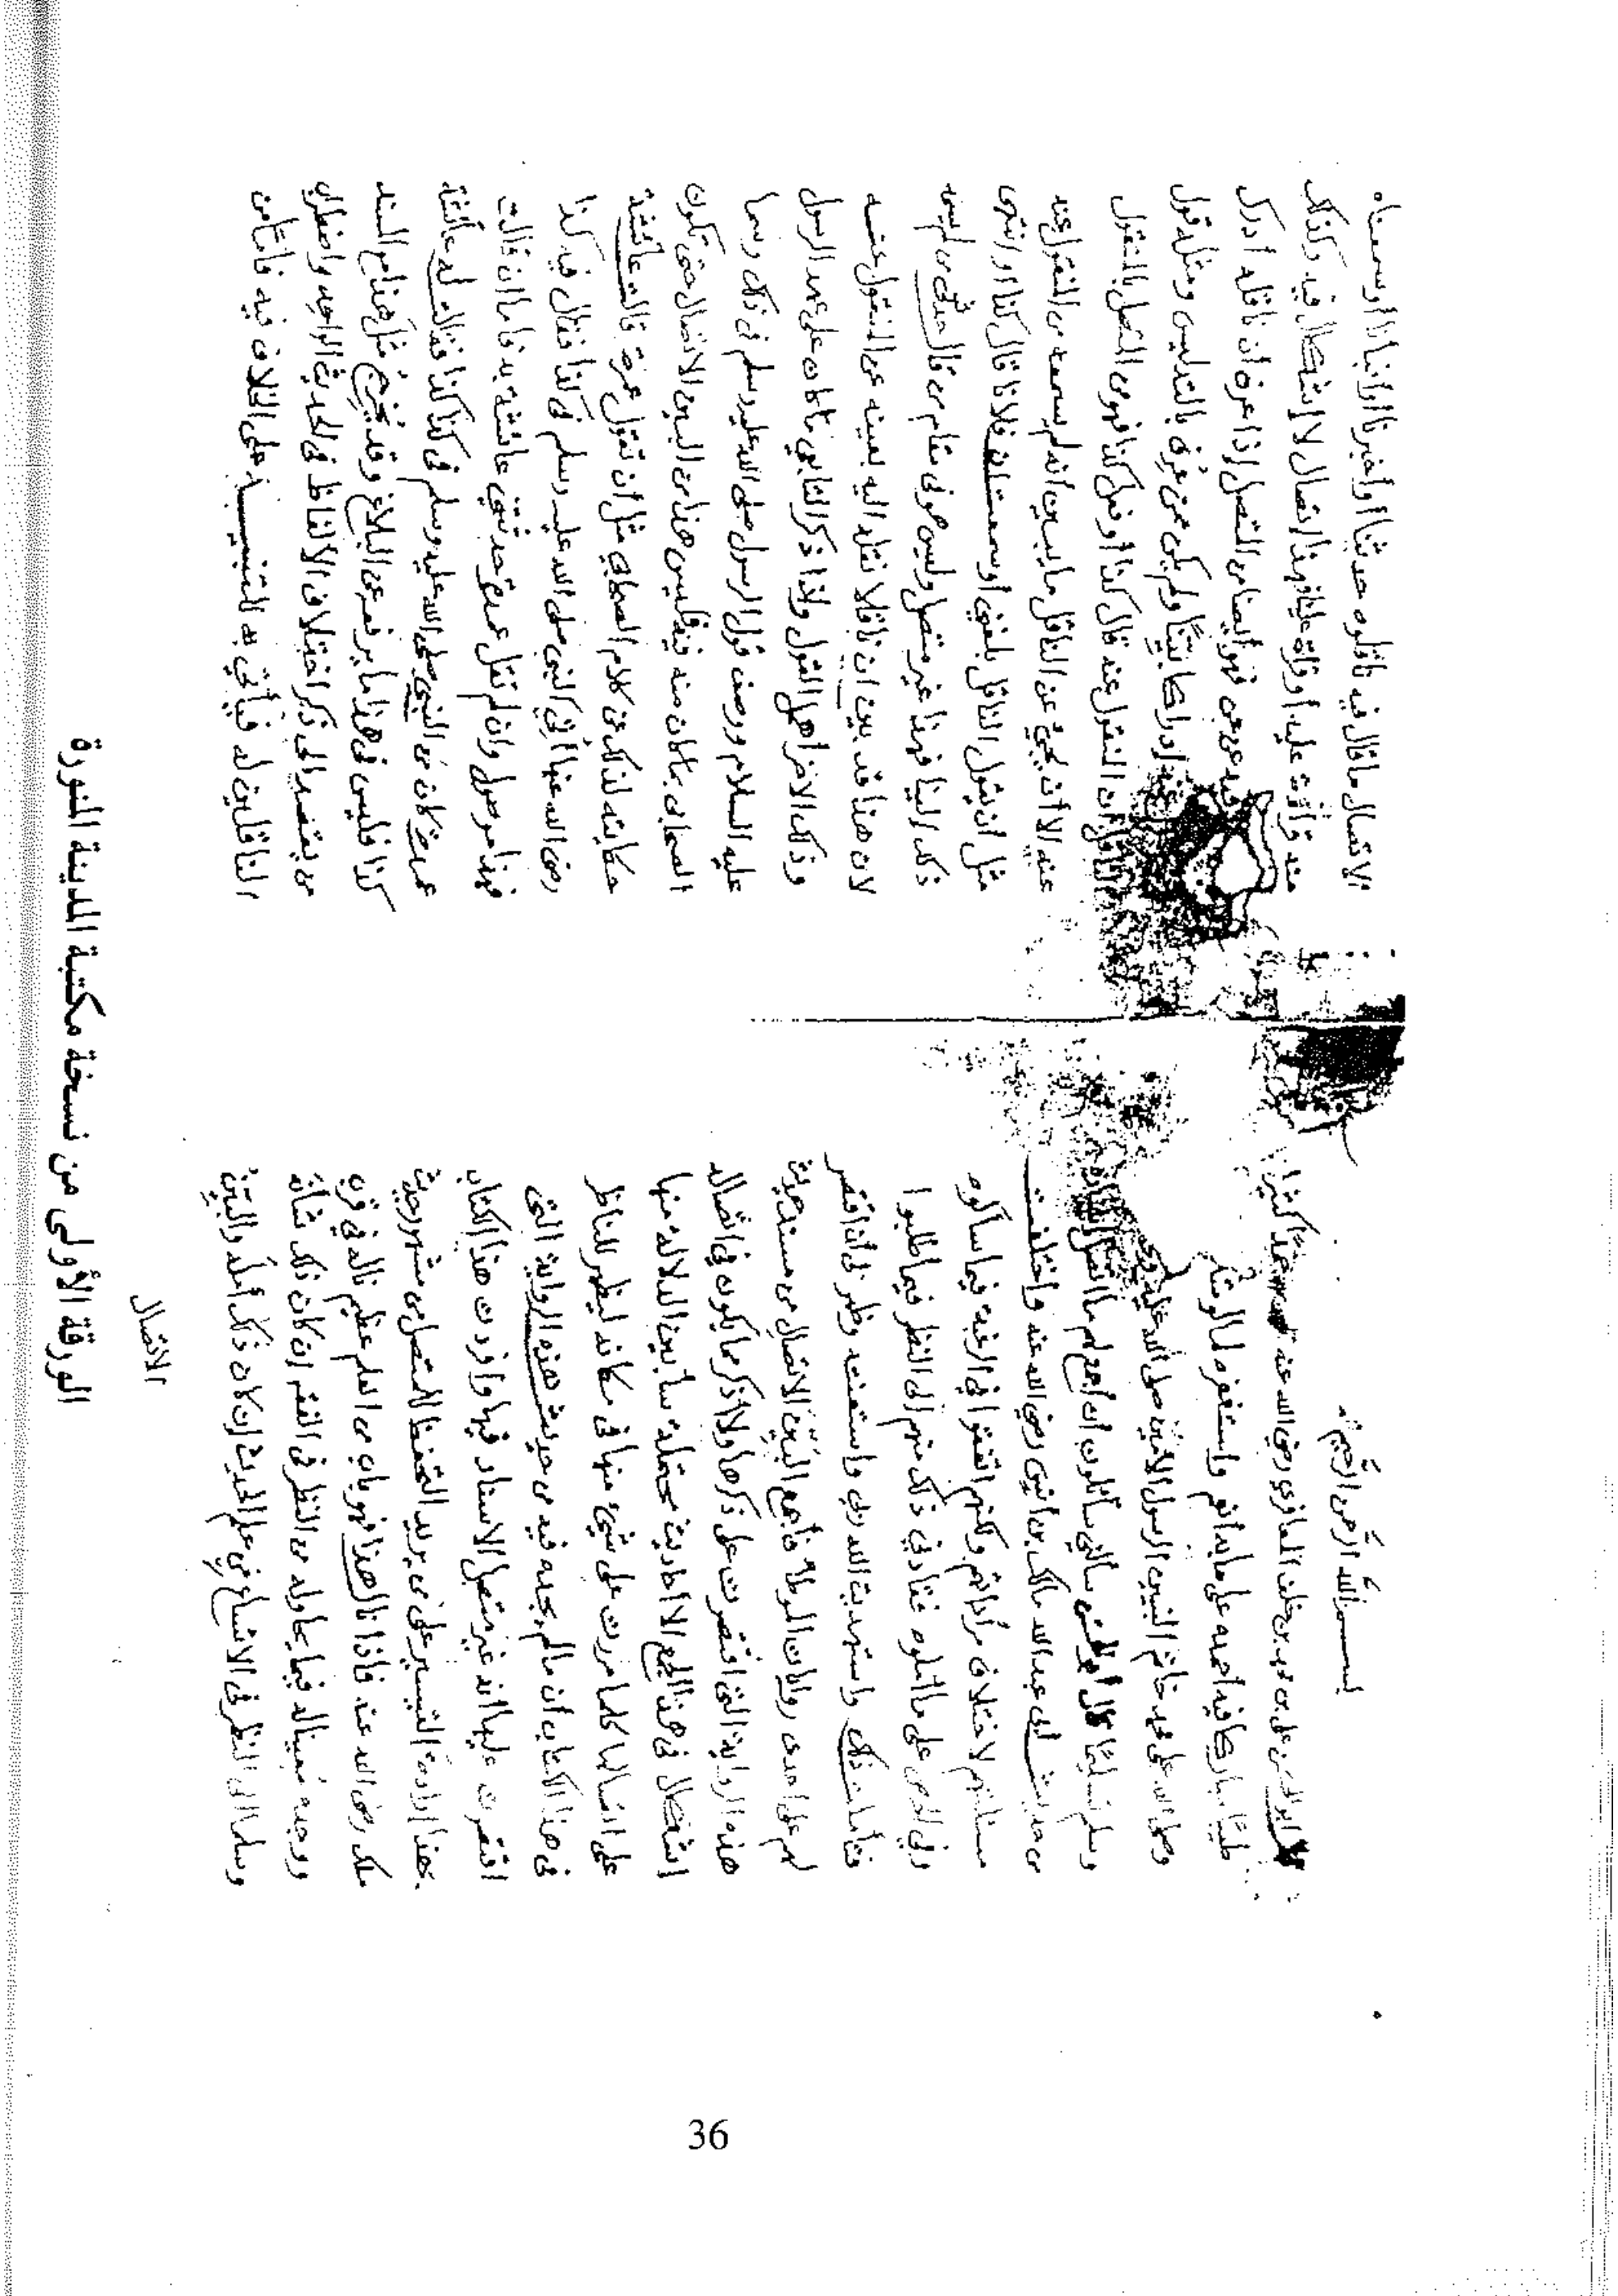 بسم الله الرحمن الرحيم
قال ابو الحسن على بن محمد بن خلف المعافري رضي الله عنه الحمد لله حمدًا كثيرًا
طيبًا مباركًا فيه احمده على ما به انعم واستغفره لما
وصلى الله على محمد خاتم النبيين الرسول الامين صلى الله عليه
وسلم تسليمًا سألني سائلون ان اجمع لهم ما اتصل اسناده
من حديث ابى عبدالله مالك بن انس رضي الله عنه واختلفت
مسئلتهم لاختلاف مراداتهم وكلهم اتفقوا في الرغبة فيما سألوه
وفي الحرص على ما املوه فقادني ذلك منهم الى النظر فيما طلبوا
فتأملت ذلك واستهديت الله ربي واستعنته وظهر لى أن اقتصر
لهم على احدى روايات الموطأ فاجمع البَيّن الاتصال من مسند حديث
هذه الرواية التى اقتصرت على ذكرها ولا اذكر مما يكون في اتصاله
اشكال في هذا الجمع الا احاديث محتملة سأبين الدلالة منها
على اتصالها كلما مررت على شئ منها في مكانه ليظهر للناظر
في هذا الكتاب ان ما لم يجده فيه من حديث هذه الرواية التى
اقتصرت عليها انه غير متصل الاسناد فيها وافردت هذا الكتاب
بهذا ارادة التيسير على من يريد التحفظ للمتصل من مشهور حديث
ملك رضى الله عنه فاذا ناله هذا فهو باب من العلم عظيم ناله في قربه
ووجده معينا له فيما يحاوله من النظر في الفقه ان كان ذلك شأنه
وسلما الى النظر في الاتساع في علم الحديث ان كان ذلك امله والبَيّن
الاتصال
الاتصال ما قال فيه ناقلوه حدثنا او اخبرنا او انبأنا او سمعناه
منه قراءة عليه او قراه علينا فهذا اتصال لا اشكال فيه وكذلك
فيه عن عن فهو ايضا من المتصل اذا عرف ان ناقله ادرك
ادراكا بيّنًا ولم يكن ممن عرف بالتدليس ومثله قول
الناقل ان المنقول عنه قال كذا او فعل كذا فهو من المتصل بالمنقول
عنه الا أن يجئ عن الناقل ما يبين انه لم يسمعه من المنقول عنه
مثل ان يقول الناقل بلغنى او سمعت ان فلانا قال كذا او انتهى
ذلك الينا فهذا غير متصل وليس هو في مقام من قال حدثنى من لم يسمه
لان هذا قد بين ان ناقلا نقله اليه بعينه عن المنقول عنه
وذلك الاخر اهمل القول واذا ذكر التابعي ما كان على عهد الرسول
عليه السلام ووصف قول الرسول صلى الله عليه وسلم في ذلك وسما
الصحابى بما كان منه فيه فليس هذا من البين الاتصال حتى تكون
حكايته لذلك عن كلام الصحابي مثل ان تقول عمرة قالت عائشة
رضي الله عنها أُتِي النبي صلى الله عليه وسلم في كذا فقال فيه كذا
فهذا موصول وان لم تقل عمرة حدثتنى عائشة به فاما ان قالت
عمرة كان من النبي صلى الله عليه وسلم في كذا كذا فقالت له عائشة
كذا فليس في هذا ما يرفعه عن البلاغ وقد يُخرج مثل هذا في المسند
من يقصد الى ذكر اختلاف الالفاظ في الحديث الواحد واضطراب
الناقلين له فيأتي به للتنبيه على الخلاف فيه فاما من
الورقة الأولى من نسخة مكتبة المدينة المنورة
36